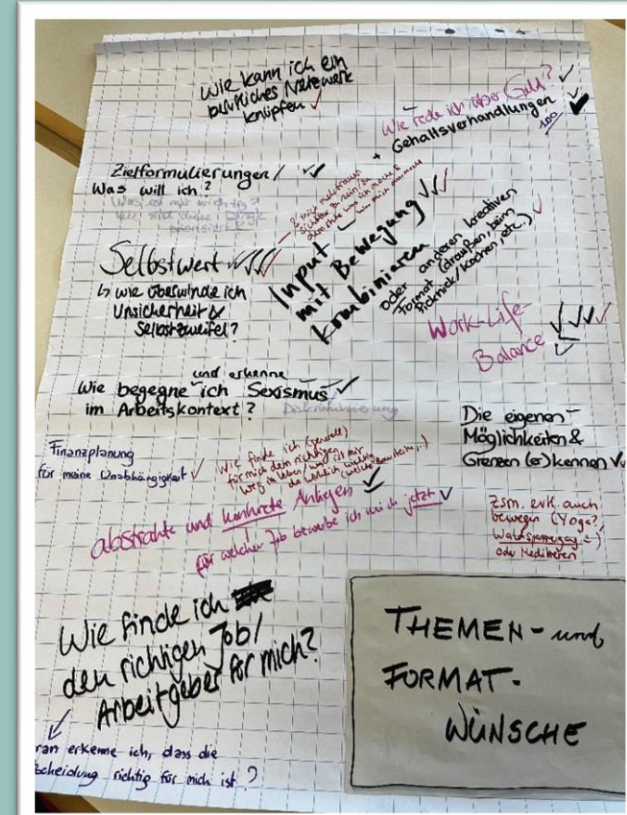 Wie kann ich ein
berufliches Netzwerk
knüpfen ✓
Wie rede ich über Geld? ✓
+ Gehaltsverhandlungen ✓
100
Zielformulierungen / ✓✓
Was will ich?
Was ist mir wichtig?
Selbstwert ✓✓✓✓
↳ Wie überwinde ich
Unsicherheit &
Selbstzweifel?
Input ✓
mit Bewegung ✓✓✓
kombinieren
oder anderen kreativen
Format (draußen, beim ✓
Picknick/Kochen, etc.)
Work-Life-
Balance ✓✓✓✓
und erkenne
Wie begegne ich Sexismus ✓
im Arbeitskontext? Diskriminierung
Die eigenen
Möglichkeiten &
Grenzen (er)kennen ✓✓
Finanzplanung
für meine Unabhängigkeit ✓
Wie finde ich (generell)
für mich den richtigen
Weg im Leben / was ist mir
abstrakte und konkrete Anliegen ✓✓
für welchen Job bewerbe ich mich jetzt ✓
Zsm. evtl. auch
bewegen (Yoga?,
Waldspaziergang :-)
oder Meditieren
Wie finde ich
den richtigen Job/
Arbeitgeber für mich?
ran erkenne ich, dass die
scheidung richtig für mich ist?
THEMEN- und
FORMAT-
WÜNSCHE